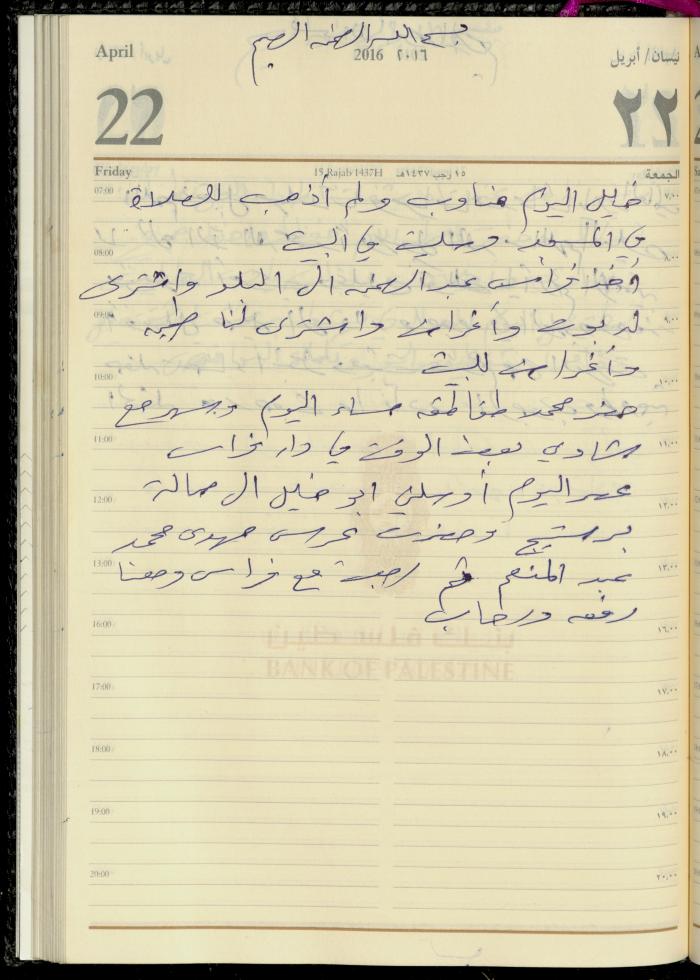 بسم الله الرحمن الرحيم
April 2016 ٢٠١٦ نيسان / أبريل
22 ٢٢
Friday 15 Rajab 1437H ١٥ رجب ١٤٣٧هـ الجمعة
07:00 ٧,٠٠
خليل اليوم مناوب ولم أذهب للصلاة
في المسجد وصليت في البيت
08:00 ٨,٠٠
أخذ فراس عبد الرحمن الى البلد واشترى
09:00 ٩,٠٠
له بوت وأغراض واشترى لنا طبخه
وأغراض للبيت
10:00 ١٠,٠٠
حضر محمد طقاطقه مساء اليوم وسهر مع
11:00 ١١,٠٠
شادي بعض الوقت في دار فراس
عصر اليوم أوصلني ابو خليل الى صالة
12:00 ١٢,٠٠
برستيج وحضرت عرس مهدي محمد
13:00 ١٣,٠٠
عبد المنعم ثم رجعت مع فراس ومعنا
رفقه ورحاب
16:00 ١٦,٠٠
بنك فلسطين
BANK OF PALESTINE
17:00 ١٧,٠٠
18:00 ١٨,٠٠
19:00 ١٩,٠٠
20:00 ٢٠,٠٠